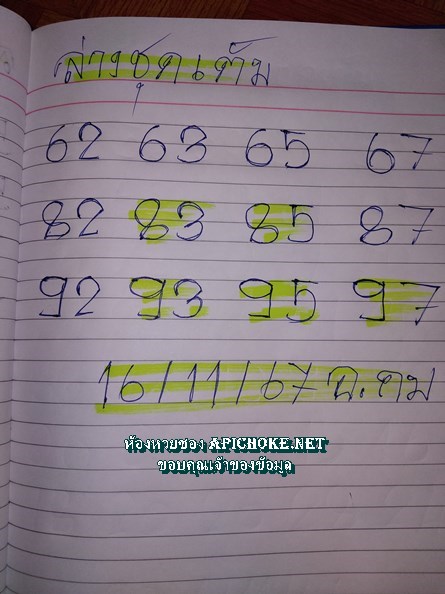 ล่างชุดเต็ม
62 63 65 67
82 83 85 87
92 93 95 97
16/11/67 อ.คม
ห้องหวยซอง APICHOKE.NET
ขอบคุณเจ้าของข้อมูล